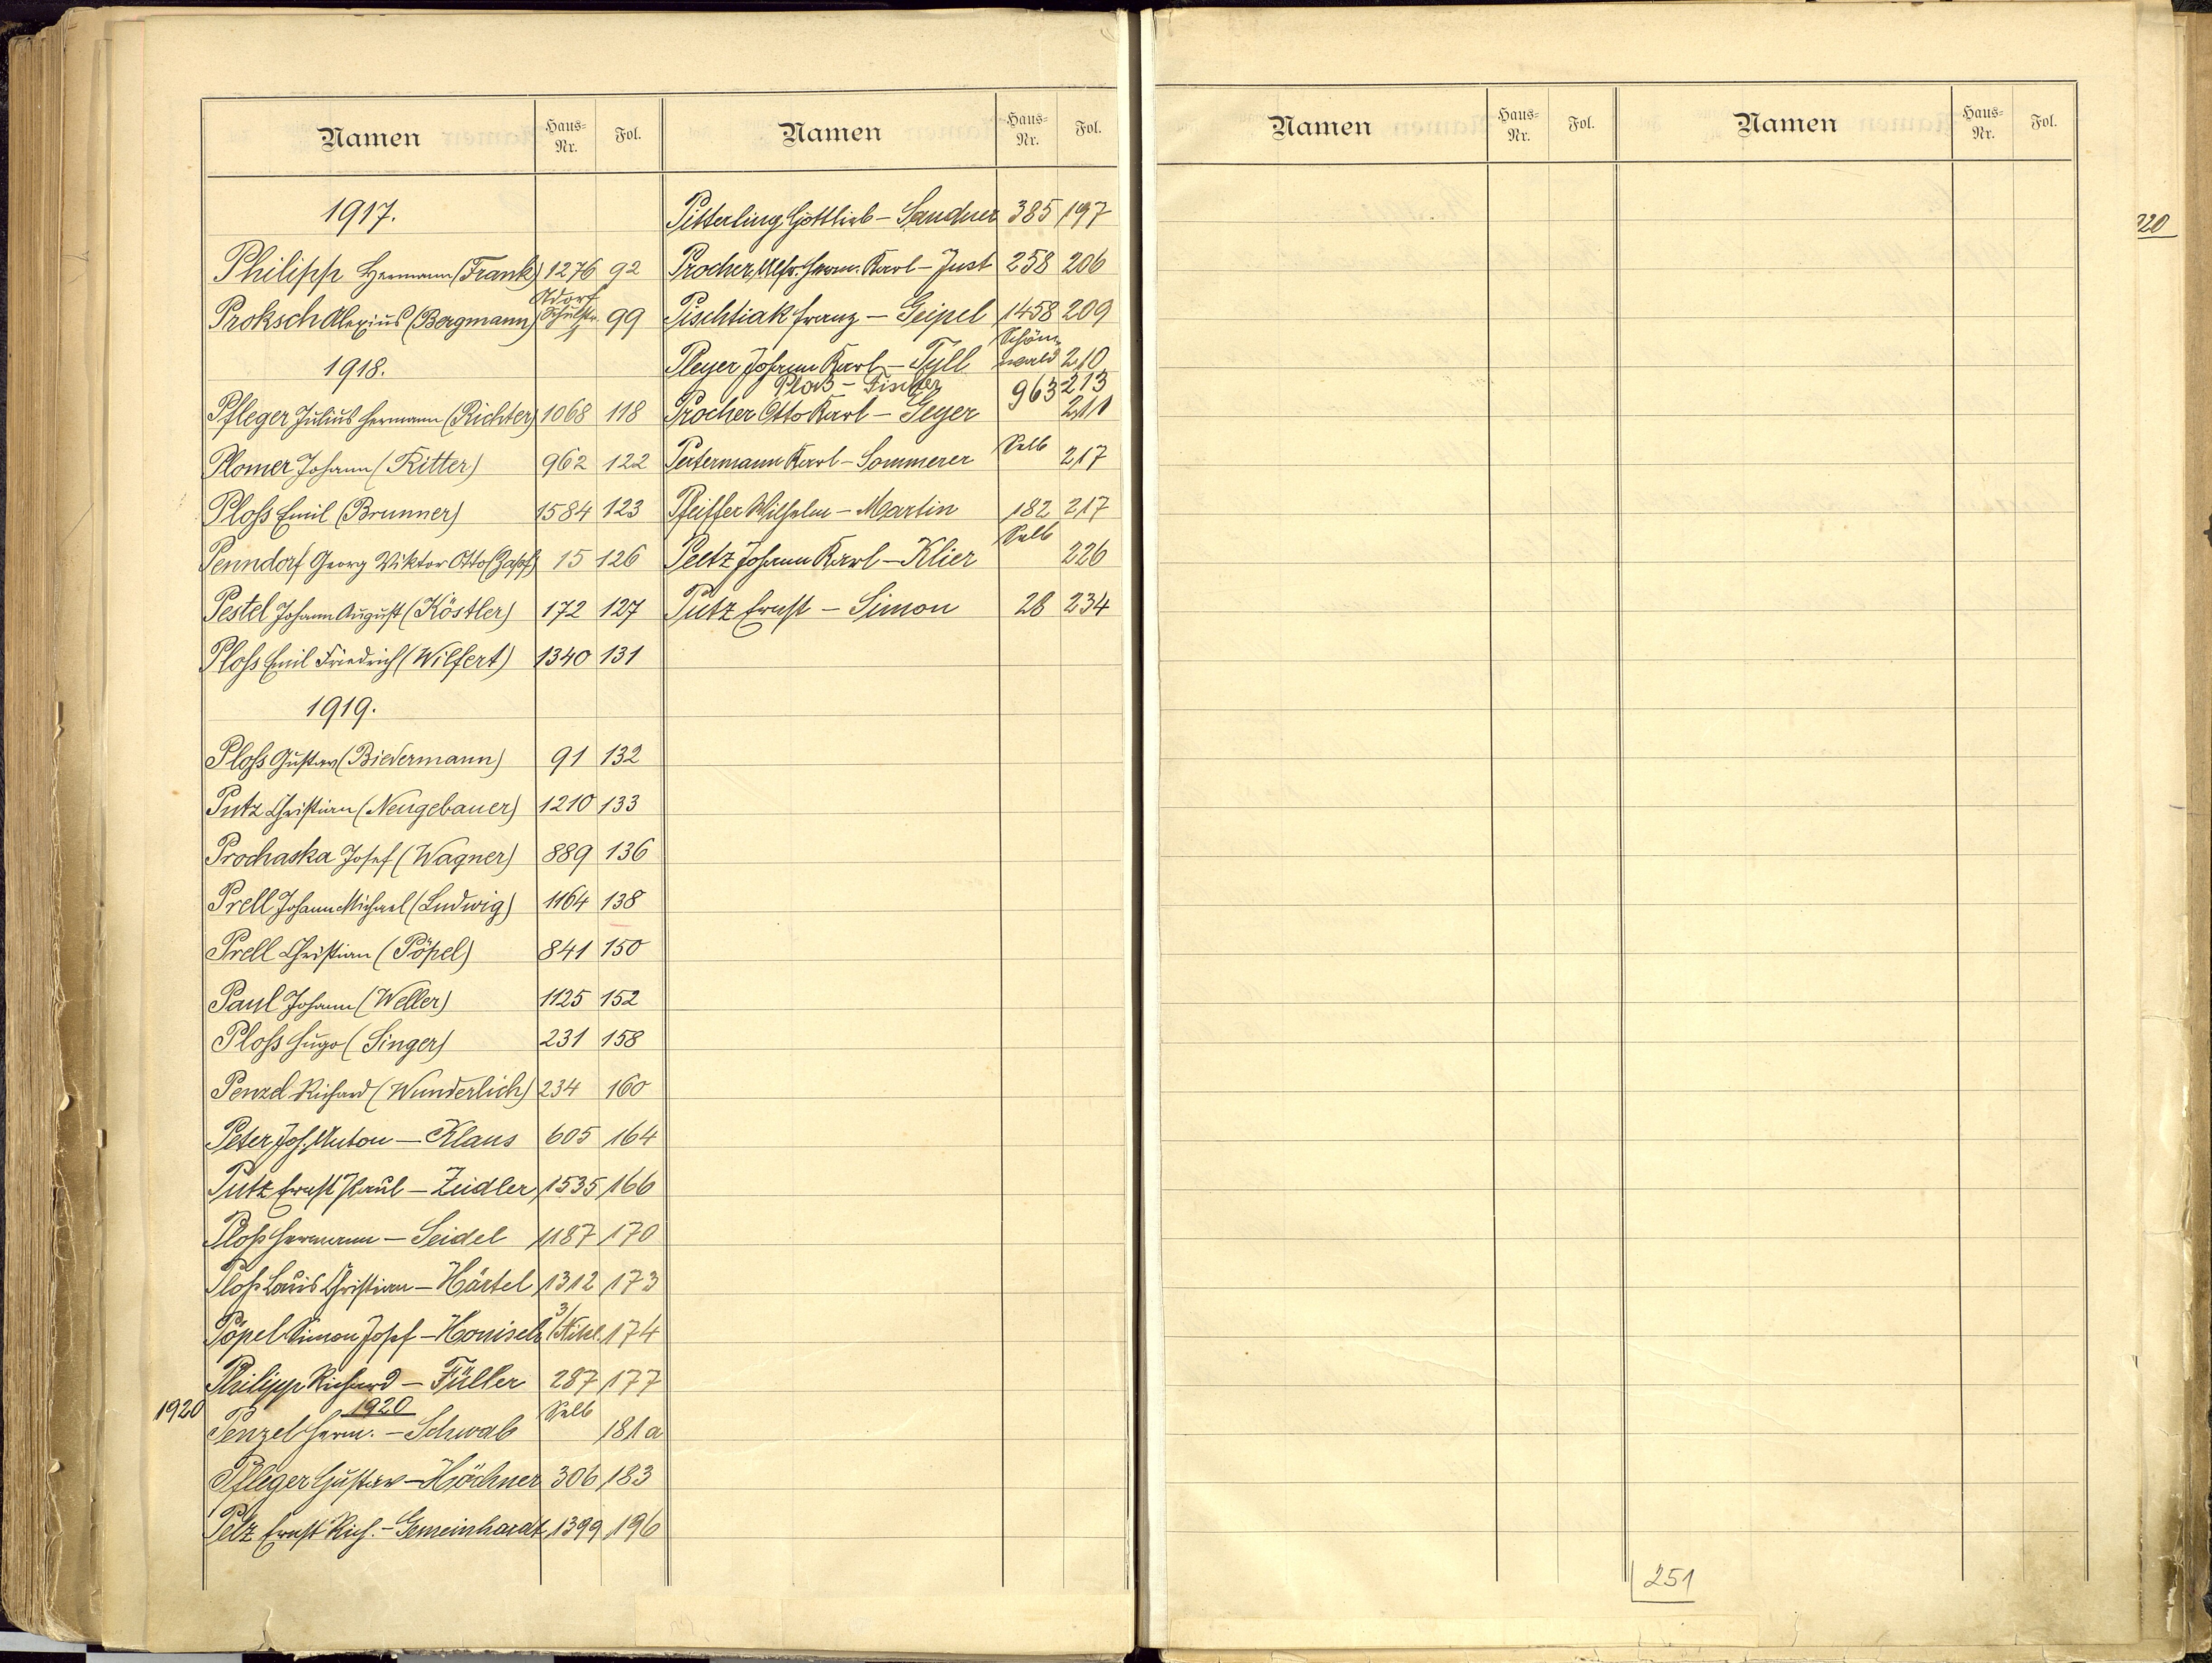 Namen Haus-Nr. Fol.
1917.
Philipp Hermann (Frank) 1276 92
Adorf
Proksch Alexius (Bergmann) Schulstr. 99
1918.
Pfleger Julius Hermann (Richter) 1068 118
Plomer Johann (Ritter) 962 122
Ploß Emil (Brunner) 1584 123
Penndorf Georg Viktor Otto (Zapf) 15 126
Pestel Johann August (Köstler) 172 127
Ploß Emil Friedrich (Wilfert) 1340 131
1919.
Ploß Gustav (Biedermann) 91 132
Putz Christian (Neugebauer) 1210 133
Prochaska Josef (Wagner) 889 136
Prell Johann Michael (Ludwig) 1164 138
Prell Christian (Pöpel) 841 150
Paul Johann (Weller) 1125 152
Ploß Hugo (Singer) 231 158
Penzel Richard (Wunderlich) 234 160
Peter Joh. Anton – Klaus 605 164
Putz Ernst Paul – Zeidler 1535 166
Ploß Hermann – Seidel 1187 170
Ploß Louis Christian – Härtel 1312 173
Pöpel Simon Josef – Honisch 3/ 174
Philipp Richard – Füller 287 177
1920 1920
Penzel Herm. – Schwab Selb 181a
Pfleger Gustav – Höchner 306 183
Pelz Ernst Rich. – Gemeinhardt 1399 196
Namen Haus-Nr. Fol.
Pitterling Gottlieb – Sandner 385 197
Procher Alfr. Herm. Karl – Just 258 206
Pischtiak Franz – Geipel 1458 209
Pleyer Johann Karl – Tyll Schönwald 210
Ploß – Fischer 963 213
Procher Otto Karl – Geyer 211
Petermann Karl – Sommerer Selb 217
Pfeiffer Wilhelm – Martin 182 217
Peetz Johann Karl – Klier Selb 226
Putz Ernst – Simon 28 234
Namen Haus-Nr. Fol.
Namen Haus-Nr. Fol.
220
251